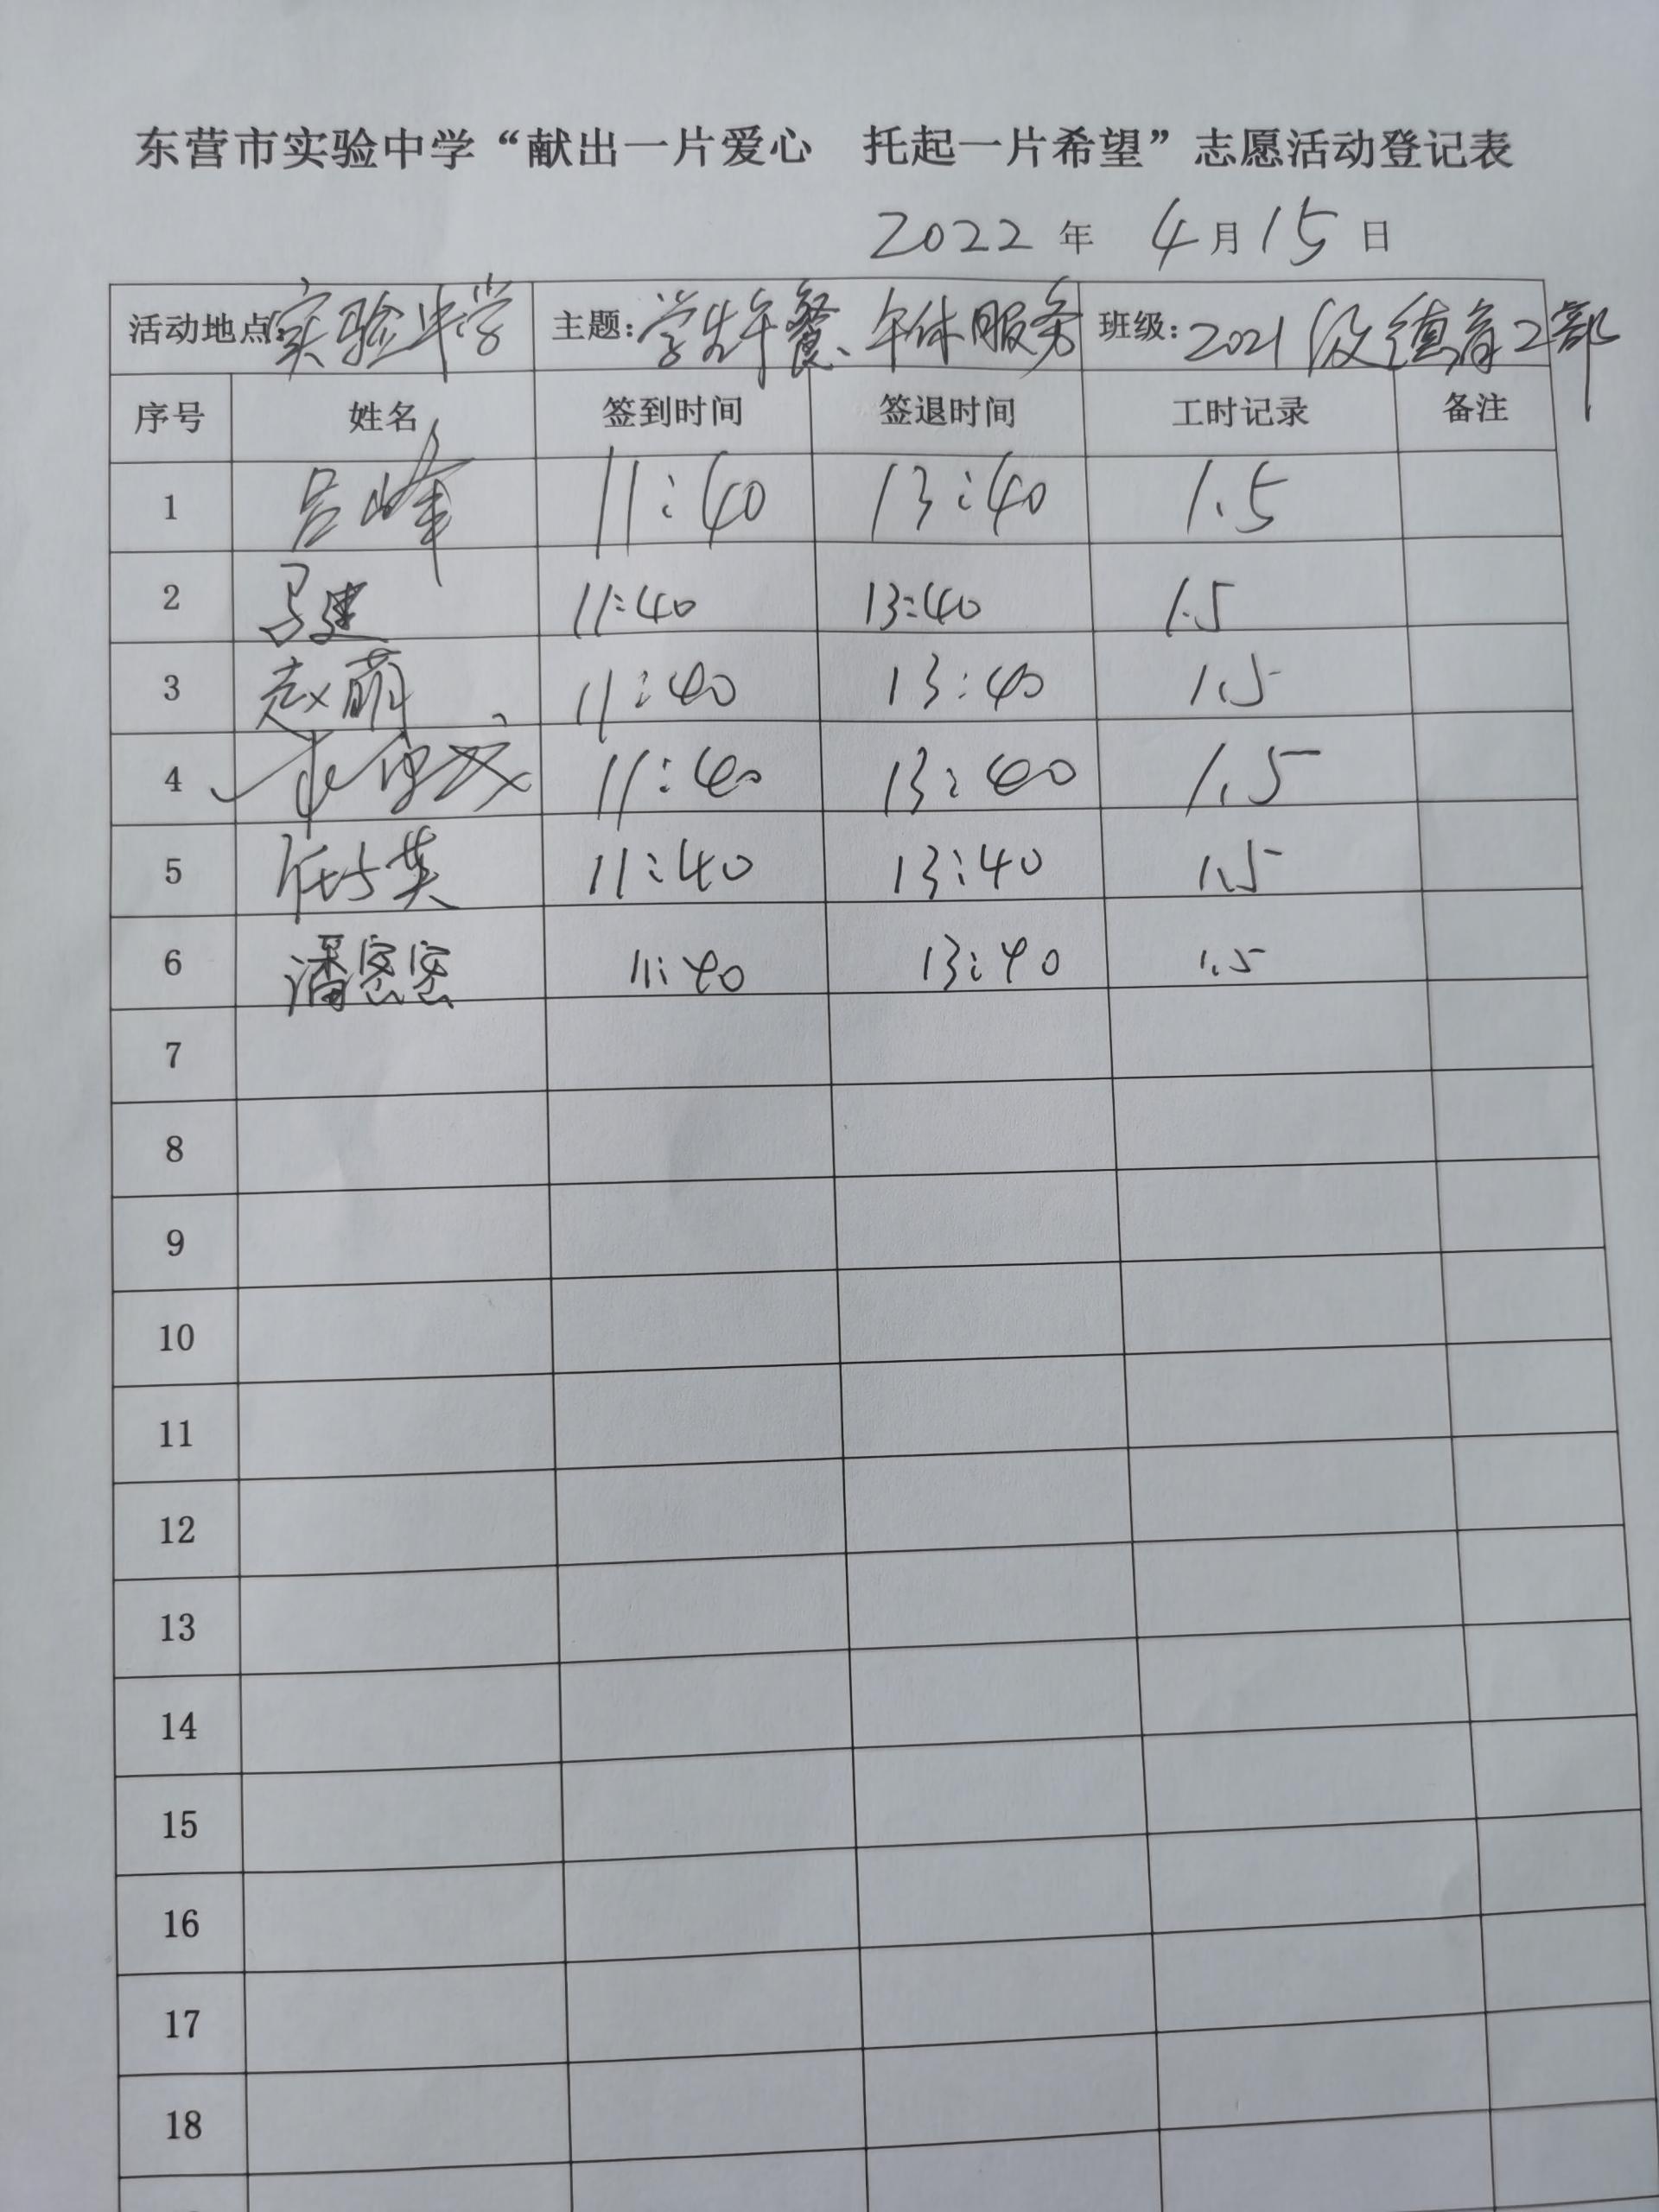 东营市实验中学“献出一片爱心 托起一片希望”志愿活动登记表
2022 年 4 月 15 日
活动地点:实验中学 主题:学生午餐、午休服务 班级:2021级德育2部
序号 姓名 签到时间 签退时间 工时记录 备注
1 吕峰 11:40 13:40 1.5
2 马建 11:40 13:40 1.5
3 赵萌 11:40 13:40 1.5
4 11:40 13:40 1.5
5 11:40 13:40 1.5
6 潘密密 11:40 13:40 1.5
7
8
9
10
11
12
13
14
15
16
17
18